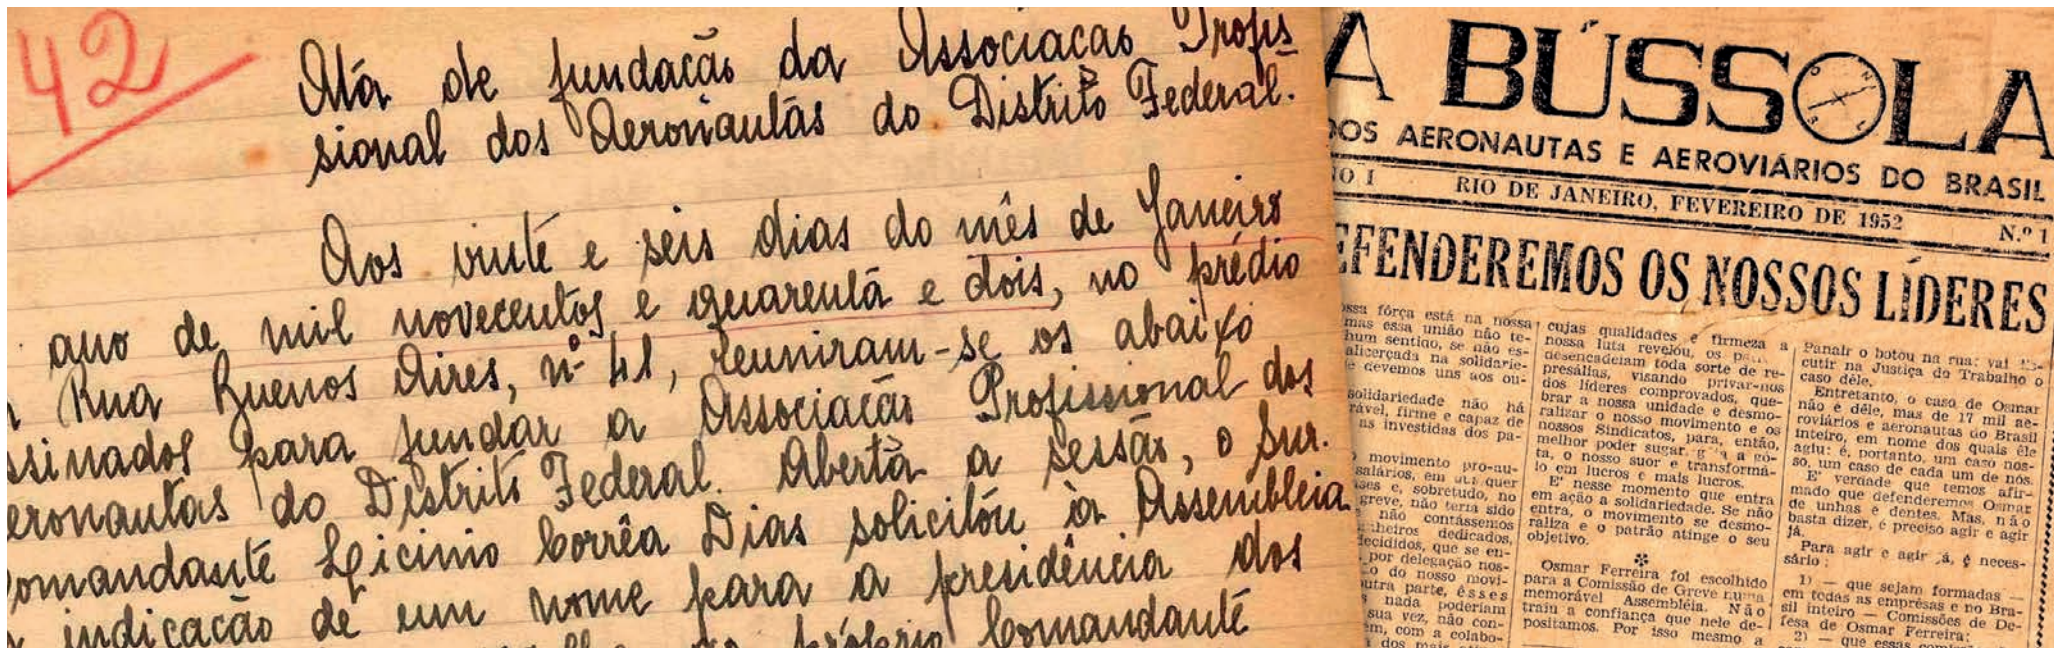 42
Atá de fundacão da Associacao Profis
sional dos Aeronautas do Distrito Federal.
Aos vinte e seis dias do mês de Janeiro
ano de mil novecentos e quarenta e dois, no prédio
Rua Buenos Aires, nº 41, reuniram-se os abaixo
ssinados para fundar a Associacão Profissional dos
eronautas do Distrito Federal. Aberta a sessão, o Snr.
omandante Licinio Corrêa Dias solicitou à Assembleia
indicacão de um nome para a presidência dos
próprio Comandante
A BÚSSOLA
DOS AERONAUTAS E AEROVIÁRIOS DO BRASIL
NO I RIO DE JANEIRO, FEVEREIRO DE 1952 N.º 1
EFENDEREMOS OS NOSSOS LÍDERES
ossa fôrça está na nossa
mas essa união não te-
hum sentido, se não es-
alicerçada na solidarie-
e devemos uns aos ou-
solidariedade não há
rável, firme e capaz de
as investidas dos pa-
movimento pro-au-
salários, em quer
ses e, sobretudo, no
greve, não teria sido
não contássemos
nheiros dedicados,
decididos, que se en-
por delegação nos-
o do nosso movi-
outra parte, êsses
nada poderiam
sua vez, não con-
em, com a colabo-
dos mais
cujas qualidades e firmeza a
nossa luta revelou, os
desencadeiam toda sorte de re-
presálias, visando privar-nos
dos líderes comprovados, que-
brar a nossa unidade e desmo-
ralizar o nosso movimento e os
nossos Sindicatos, para, então,
melhor poder sugar, a gô-
ta, o nosso suor e transformá-
lo em lucros e mais lucros.
E' nesse momento que entra
em ação a solidariedade. Se não
entra, o movimento se desmo-
raliza e o patrão atinge o seu
objetivo.
Osmar Ferreira foi escolhido
para a Comissão de Greve numa
memorável Assembléia. Não
traiu a confiança que nele de-
positamos. Por isso mesmo a
Panair o botou na rua: vai dis-
cutir na Justiça do Trabalho o
caso dêle.
Entretanto, o caso de Osmar
não é dêle, mas de 17 mil ae-
roviários e aeronautas do Brasil
inteiro, em nome dos quais êle
agiu: é, portanto, um caso nos-
so, um caso de cada um de nós.
E' verdade que temos afir-
mado que defenderemos Osmar
de unhas e dentes. Mas, não
basta dizer, é preciso agir e agir
já.
Para agir e agir já, é neces-
sário:
1) — que sejam formadas —
em todas as emprêsas e no Bra-
sil inteiro — Comissões de De-
fesa de Osmar Ferreira;
2) — que essas